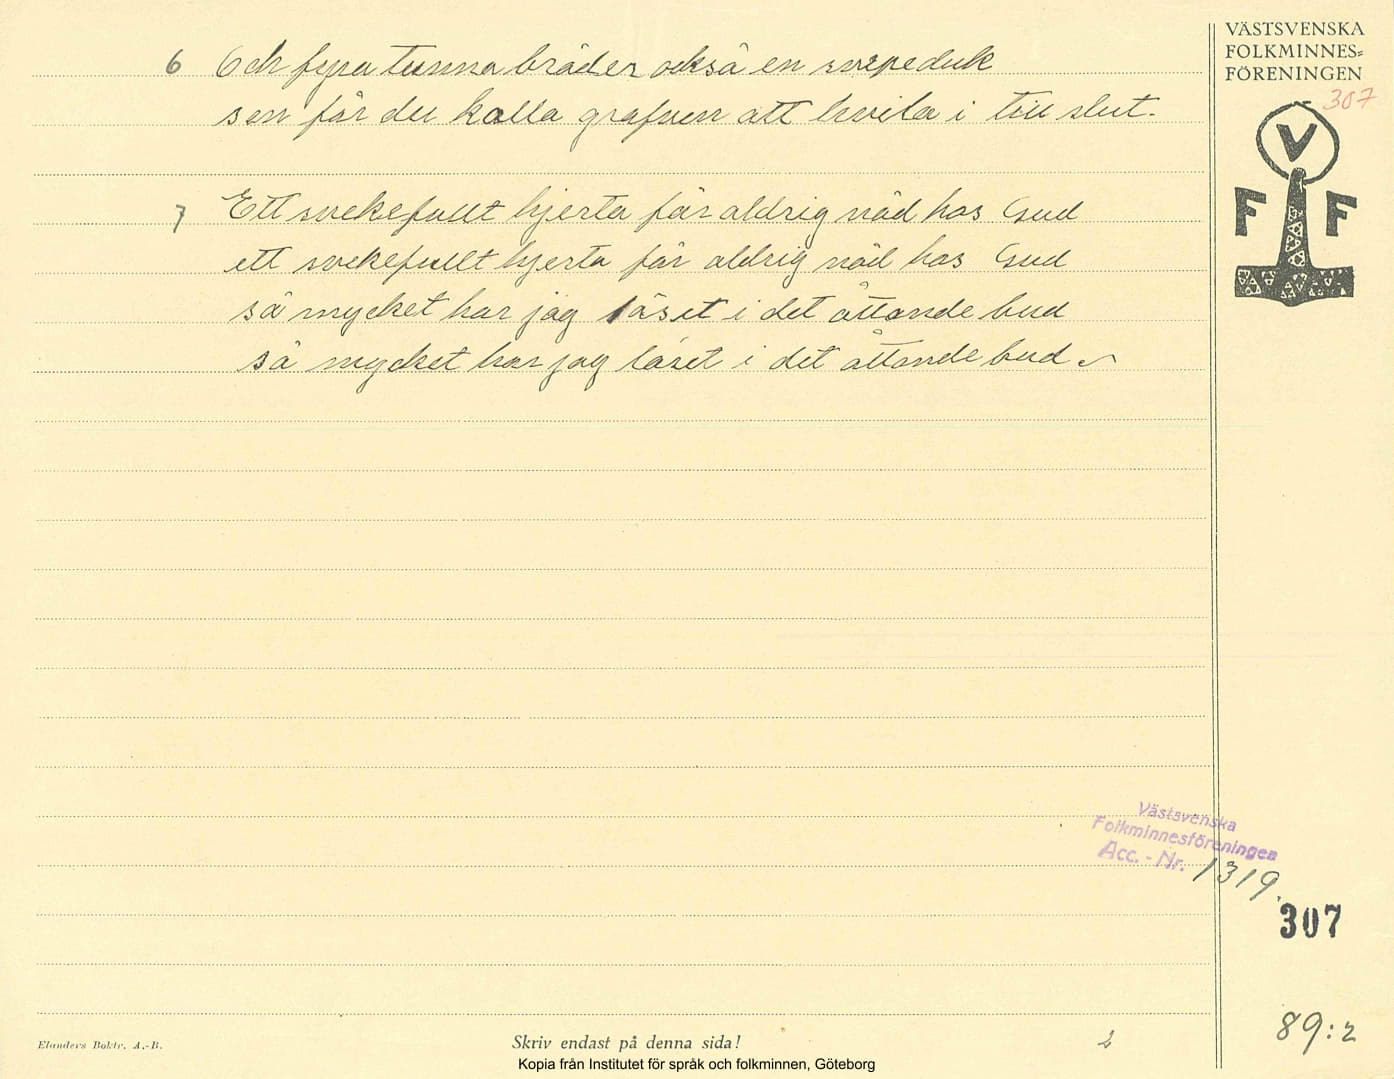 VÄSTSVENSKA
FOLKMINNES=
FÖRENINGEN
307
V
F F
6 Och fyra tunna bräder också en svepeduk
sen får du kalla grafven att hvila i till slut.
7 Ett svekefullt hjerta får aldrig nåd hos Gud
ett svekefullt hjerta får aldrig nåd hos Gud
så mycket har jag läset i det åttande bud
så mycket har jag läset i det åttande bud
Västsvenska
Folkminnesföreningen
Acc. - Nr. 1319.
307
89:2
Elanders Boktr. A.-B.
Skriv endast på denna sida!
2
Kopia från Institutet för språk och folkminnen, Göteborg